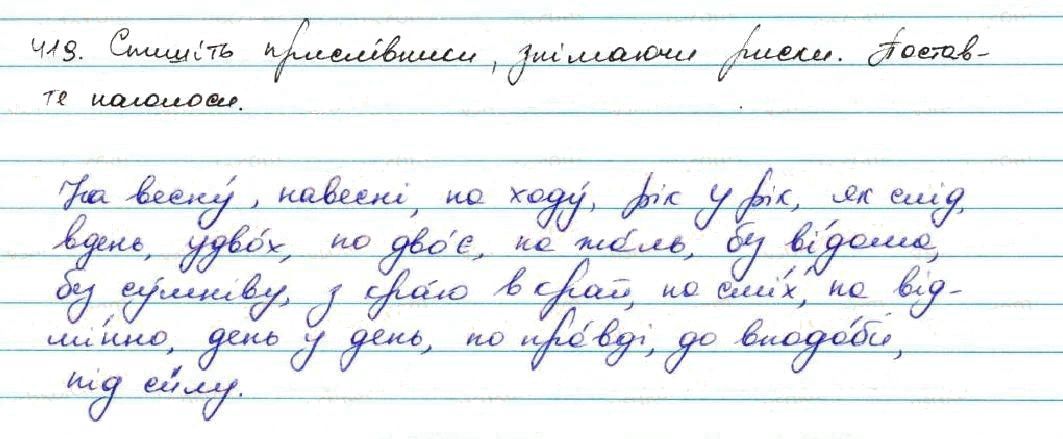 419. Спишіть прислівники, знімаючи риски. Постав-
те наголоси.
На весну́, навесні, на ходу́, рік у рік, як слід,
вдень, удво́х, по дво́є, на жа́ль, без ві́дома,
без су́мніву, з кра́ю в край, на смі́х, на від-
мі́нно, день у день, по пра́вді, до вподо́би,
під си́лу.